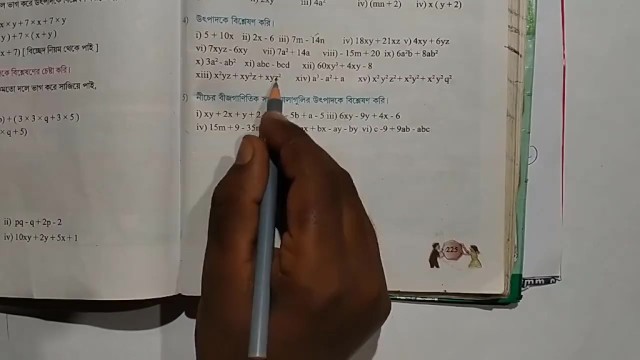 ল ভাগ করে উৎপাদকে বিশ্লেষ
x × y + 7 × x + 7 × y
y) + 7 × (x + y)
x + 7) [ বিচ্ছেদ নিয়ম থেকে পাই ]
কে বিশ্লেষণের চেষ্টা করি।
মতো দলে ভাগ করে সাজিয়ে পাই,
) + (3 × 3 × q + 3 × 5)
× q + 5)
ii) pq - q + 2p - 2
iv) 10xy + 2y + 5x + 1
iii) 4a² iv) (mn + 2) iv) x (y + 2)
4) উৎপাদকে বিশ্লেষণ করি।
i) 5 + 10x ii) 2x - 6 iii) 7m - 14n iv) 18xy + 21xz v) 4xy + 6yz
vi) 7xyz - 6xy vii) 7a² + 14a viii) - 15m + 20 ix) 6a²b + 8ab²
x) 3a² - ab² xi) abc - bcd xii) 60xy³ + 4xy - 8
xiii) x²yz + xy²z + xyz² xiv) a³ - a² + a xv) x²y²z² + x²y² + x²y²q²
5) নীচের বীজগাণিতিক উৎপাদকে বিশ্লেষণ করি।
i) xy + 2x + y + 2 5b + a - 5 iii) 6xy - 9y + 4x - 6
iv) 15m + 9 - 35m + bx - ay - by vi) c - 9 + 9ab - abc
225